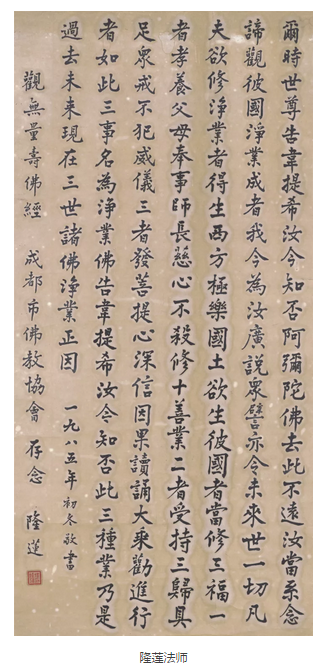 爾時世尊告韋提希汝今知否阿彌陀佛去此不遠汝當系念
諦觀彼國淨業成者我今為汝廣說眾譬亦令未來世一切凡
夫欲修淨業者得生西方極樂國土欲生彼國者當修三福一
者孝養父母奉事師長慈心不殺修十善業二者受持三歸具
足眾戒不犯威儀三者發菩提心深信因果讀誦大乘勸進行
者如此三事名為淨業佛告韋提希汝今知否此三種業乃是
過去未来現在三世諸佛淨業正因 一九八五年初冬敬書
觀無量壽佛經 成都市佛教協會存念 隆蓮
隆莲法师